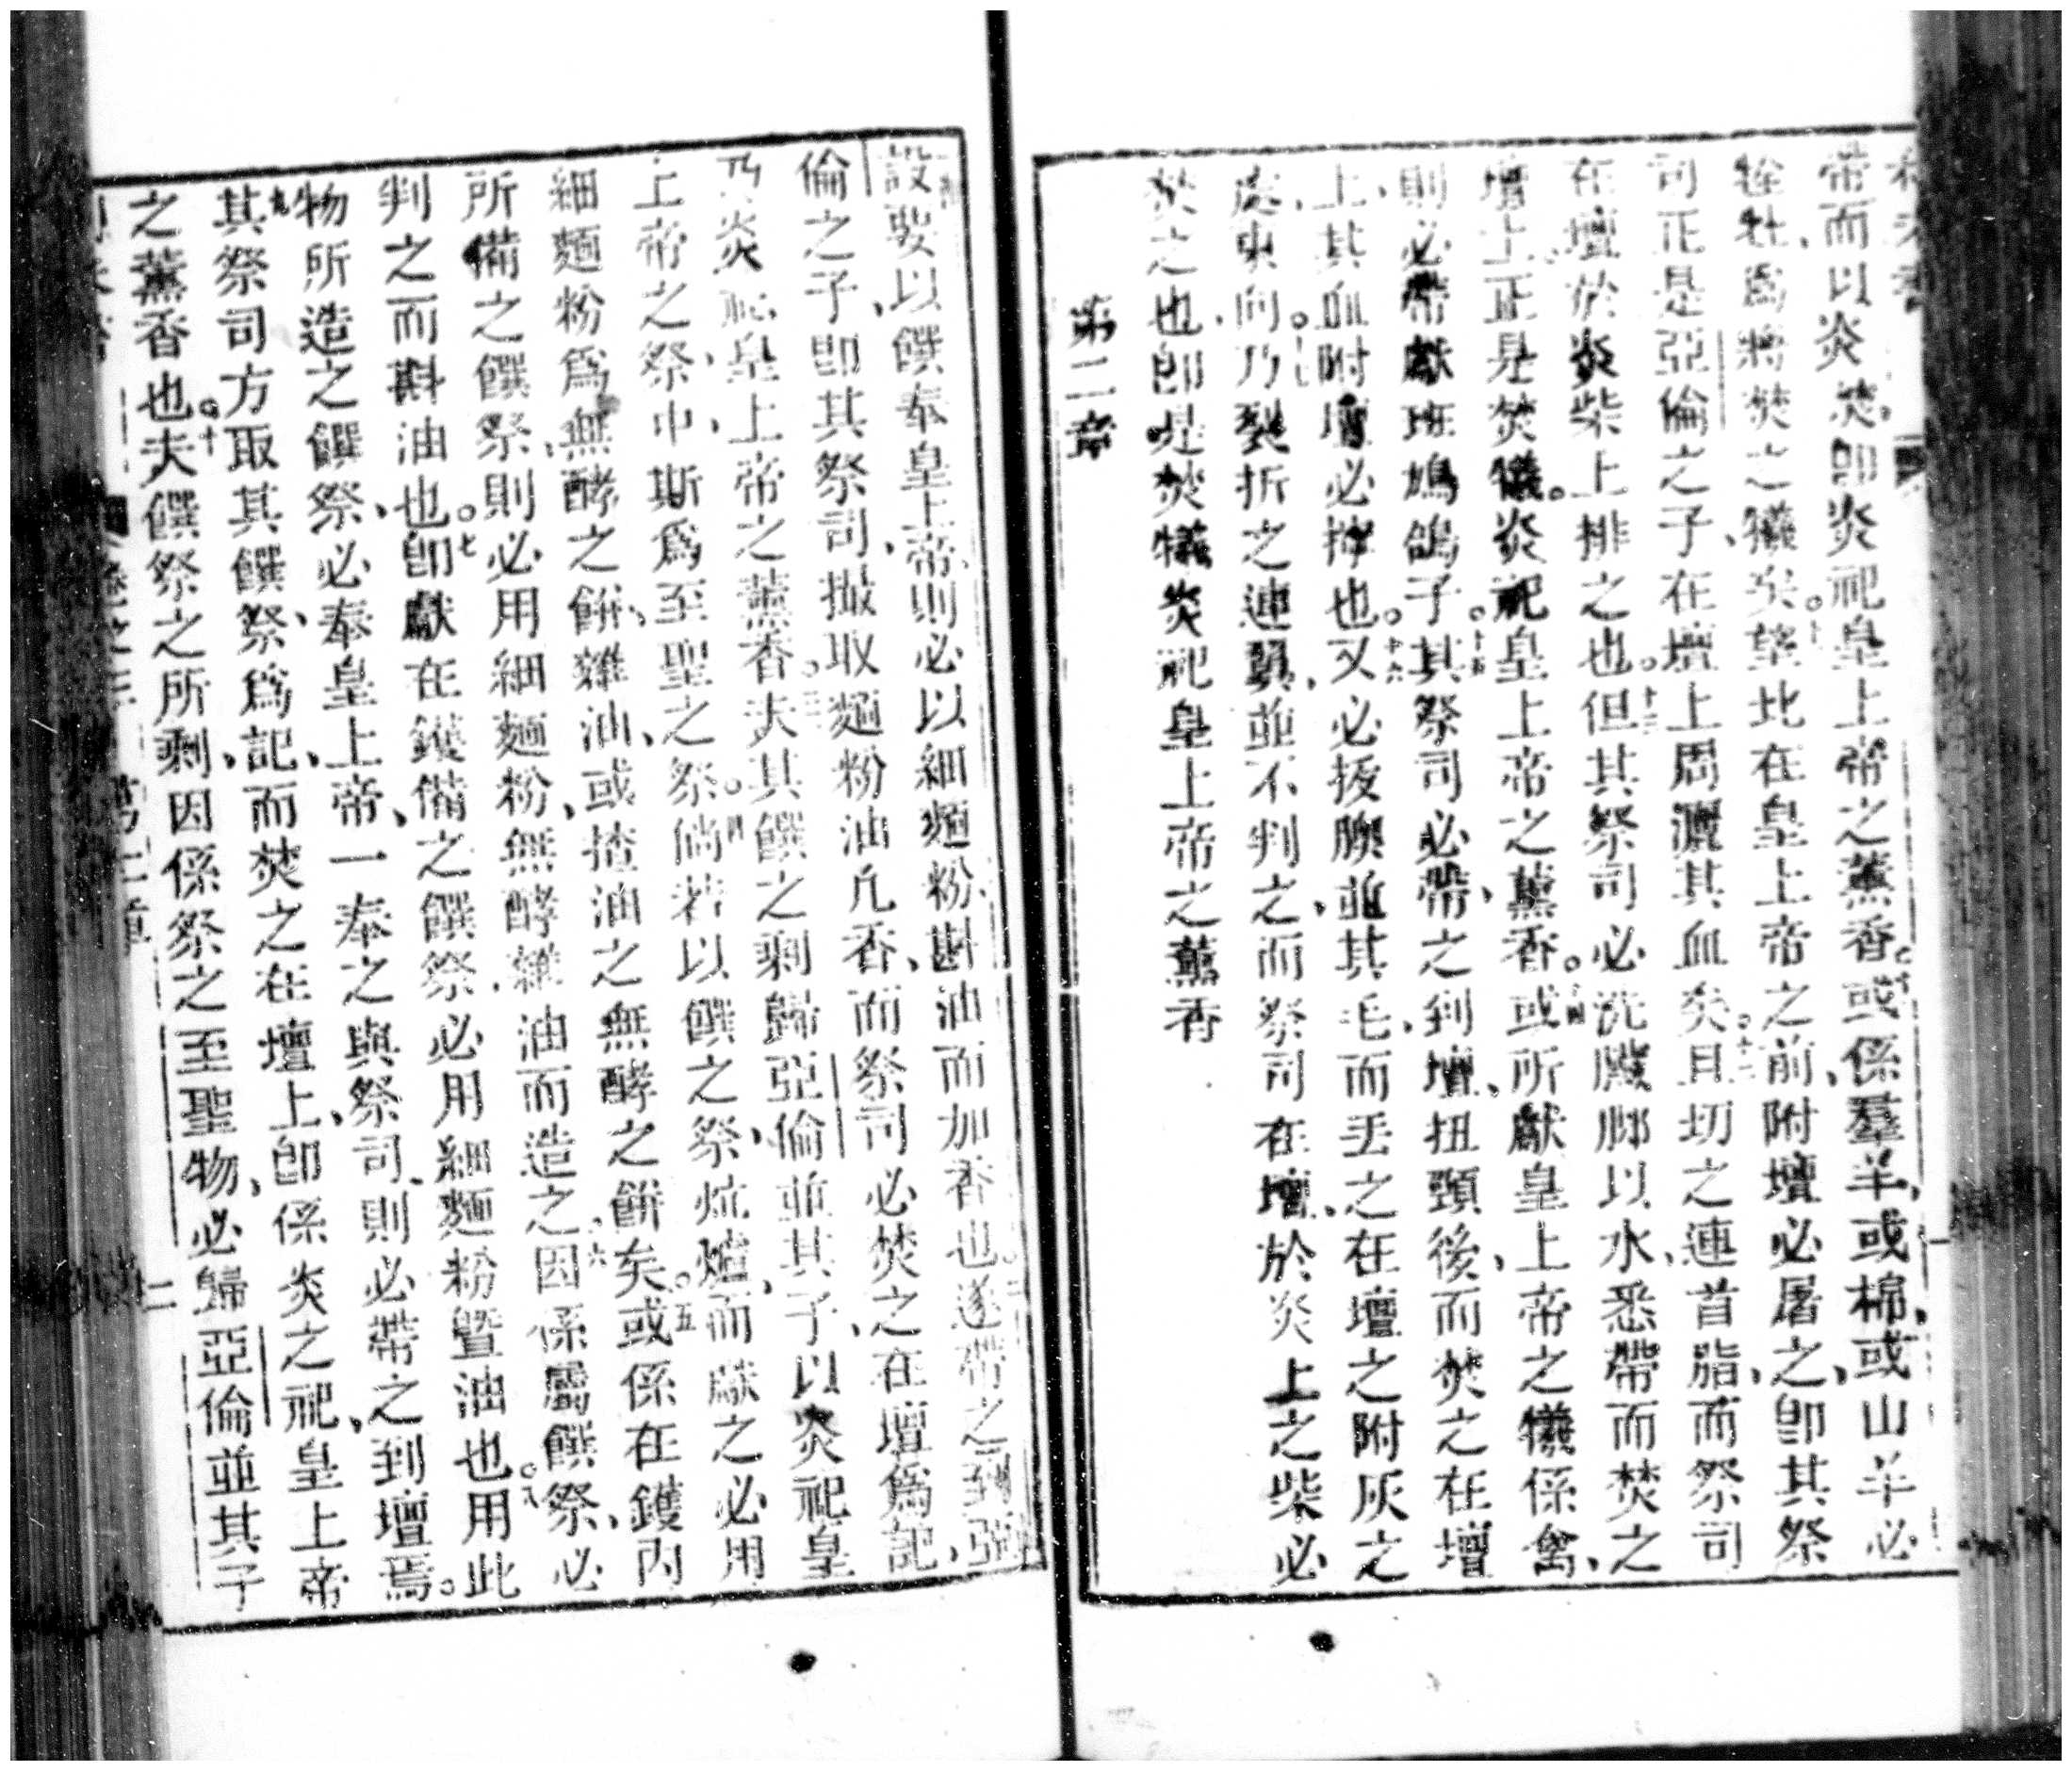 帶而以炎焚卽炎祀皇上帝之薰香。十或係羣羊、或棉、或山羊必
牷牡、爲將焚之犧矣。十一望北在皇上帝之前、附壇必屠之、卽其祭
司正是亞倫之子、在壇上周灑其血矣。十二且切之連首脂、而祭司
在壇於炎柴上排之也。十三但其祭司必洗臟腳以水、悉帶而焚之
壇上正是焚犧。炎祀皇上帝之薰香。十四或所獻皇上帝之犧係禽、
則必帶獻班鳩鴿子。十五其祭司必帶、之到壇、扭頸後、而焚之在壇
上、其血附壇必擰也。十六又必拔膆、並其毛、而丟之、在壇之附灰之
處、東向。十七乃裂折之連翼、並不判之、而祭司在壇、於炎上之柴必
焚之也、卽是焚犧炎祀皇上帝之薰香
第二章
設娶以饌奉皇上帝、則必以細麵粉、斟油而加香也。二遂帶之到亞
倫之子、卽其祭司、撮取麵粉油凡香、而祭司必焚之在壇爲記、
乃炎祀皇上帝之薰香。三夫其饌之剩歸亞倫並其子、以炎祀皇
上帝之祭、中、斯爲至聖之祭。四倘若以饌之祭、炕爐而獻之、必用
細麵粉爲無酵之餅、雜油、或揸油之無酵之餅矣。五或係在鑊內
所備之饌祭、則必用細麵粉、無酵雜油而造之、六因係屬饌祭、必
判之而斟油也。七卽獻在鑊備之饌祭、必用細麵粉曁油也。八用此
物所造之饌祭、必奉皇上帝、一奉之與祭司、則必帶之到壇焉。
九其祭司方取其饌祭、爲記、而焚之在壇上、卽係炎之祀、皇上帝
之薰香也。十夫饌祭之所剩、因係祭之至聖物、必歸亞倫並其子
二